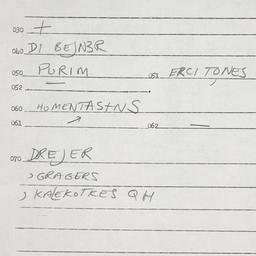 030 +
040 DI BEJNZR
050 PURIM 051 ERCITONES
052
060 HOMENTASTNS
061 062 —
070 DREJER
, GRAGERS
, KALEKOTKES QH